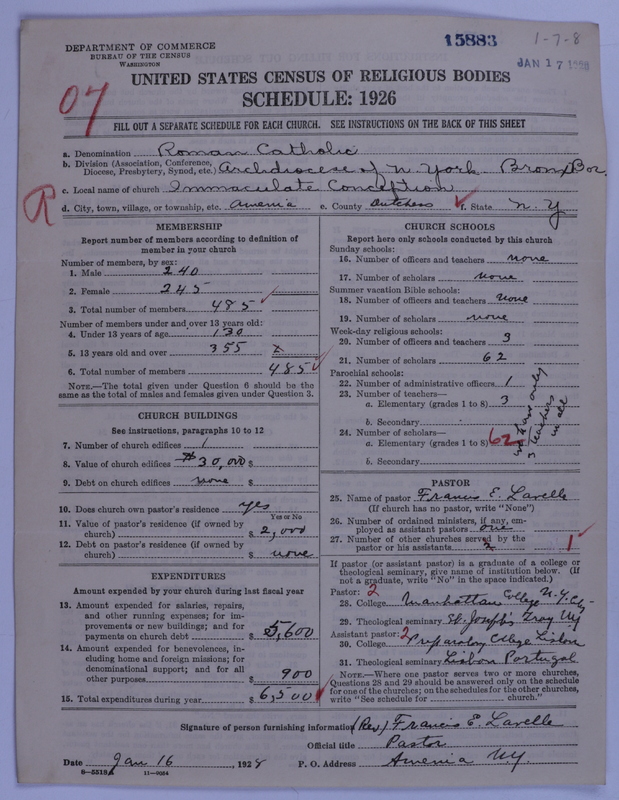 15883
1-7-8
JAN 17 1928
DEPARTMENT OF COMMERCE
BUREAU OF THE CENSUS
WASHINGTON
UNITED STATES CENSUS OF RELIGIOUS BODIES
SCHEDULE: 1926
07
FILL OUT A SEPARATE SCHEDULE FOR EACH CHURCH. SEE INSTRUCTIONS ON THE BACK OF THIS SHEET
a. Denomination Roman Catholic
b. Division (Association, Conference, Diocese, Presbytery, Synod, etc.) Archdiocese of N. York Bronx Bor.
R
c. Local name of church Immaculate Conception
d. City, town, village, or township, etc. Amenia e. County Dutchess f. State N. Y
MEMBERSHIP
Report number of members according to definition of
member in your church
Number of members, by sex:
1. Male 240
2. Female 245
3. Total number of members 485
Number of members under and over 13 years old:
4. Under 13 years of age 130
5. 13 years old and over 355 x
6. Total number of members 485
NOTE.—The total given under Question 6 should be the
same as the total of males and females given under Question 3.
CHURCH BUILDINGS
See instructions, paragraphs 10 to 12
7. Number of church edifices 1
8. Value of church edifices $30,000 $
9. Debt on church edifices none $
10. Does church own pastor's residence yes
Yes or No
11. Value of pastor's residence (if owned by
church) $ 2,000
12. Debt on pastor's residence (if owned by
church) $ none
EXPENDITURES
Amount expended by your church during last fiscal year
13. Amount expended for salaries, repairs,
and other running expenses; for im-
provements or new buildings; and for
payments on church debt $ 5,600
14. Amount expended for benevolences, in-
cluding home and foreign missions; for
denominational support; and for all
other purposes $ 900
15. Total expenditures during year $ 6,500
CHURCH SCHOOLS
Report here only schools conducted by this church
Sunday schools:
16. Number of officers and teachers none
17. Number of scholars none
Summer vacation Bible schools:
18. Number of officers and teachers none
19. Number of scholars none
Week-day religious schools:
20. Number of officers and teachers 3
21. Number of scholars 62
Parochial schools:
22. Number of administrative officers 1
23. Number of teachers—
a. Elementary (grades 1 to 8) 3
b. Secondary
24. Number of scholars—
a. Elementary (grades 1 to 8) 62
b. Secondary
we have only
3 teachers
in all
PASTOR
25. Name of pastor Francis E. Lavelle
(If church has no pastor, write "None")
26. Number of ordained ministers, if any, em-
ployed as assistant pastors one
27. Number of other churches served by the
pastor or his assistants 2 1
If pastor (or assistant pastor) is a graduate of a college or
theological seminary, give name of institution below. (If
not a graduate, write "No" in the space indicated.)
Pastor: 2
28. College Manhattan College N. Y. City
29. Theological seminary St. Joseph's Troy NY
Assistant pastor: 2
30. College Preparatory College Lisbon
31. Theological seminary Lisbon Portugal
NOTE.—Where one pastor serves two or more churches,
Questions 28 and 29 should be answered only on the schedule
for one of the churches; on the schedules for the other churches,
write "See schedule for church."
Signature of person furnishing information (Rev) Francis E. Lavelle
Official title Pastor
Date Jan 16, 1928 P. O. Address Amenia N.Y.
8-5518a 11-9054